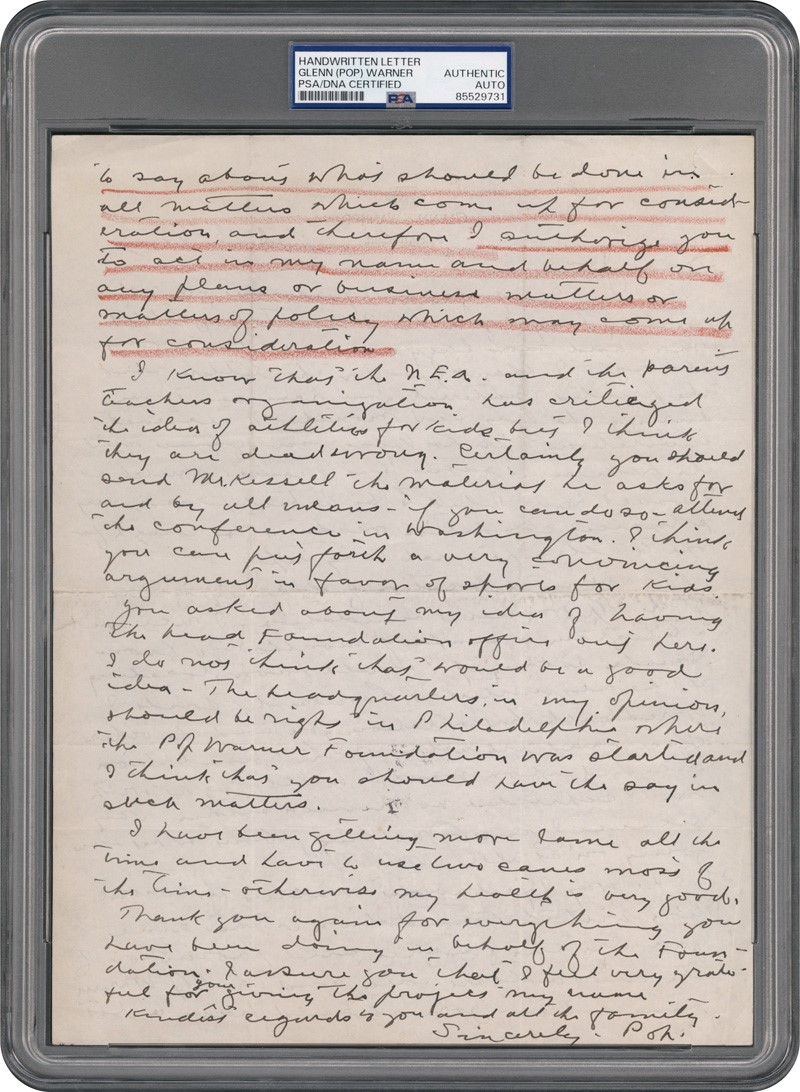 HANDWRITTEN LETTER
GLENN (POP) WARNER
PSA/DNA CERTIFIED
AUTHENTIC
AUTO
85529731
PSA
to say about what should be done in
all matters which come up for consid-
eration, and therefore I authorize you
to act in my name and behalf on
any plans or business matters or
matters of policy which may come up
for consideration
I know that the N.E.A. and the parents
teachers organization has criticized
the idea of athletics for kids but I think
they are dead wrong. Certainly you should
send Mr. Kessell the material he asks for
and by all means - if you can do so - attend
the conference in Washington. I think
you can put forth a very convincing
argument in favor of sports for kids.
You asked about my idea of having
the head Foundation office out here.
I do not think that would be a good
idea - The headquarters, in my opinion,
should be right in Philadelphia where
the Pop Warner Foundation was started and
I think that you should have the say in
such matters.
I have been getting more lame all the
time and have to use two canes most of
the time - otherwise my health is very good.
Thank you again for everything you
have been doing in behalf of the Foun-
dation. I assure you that I feel very grate-
ful for your giving the project my name
Kindest regards to you and all the family.
Sincerely - Pop.